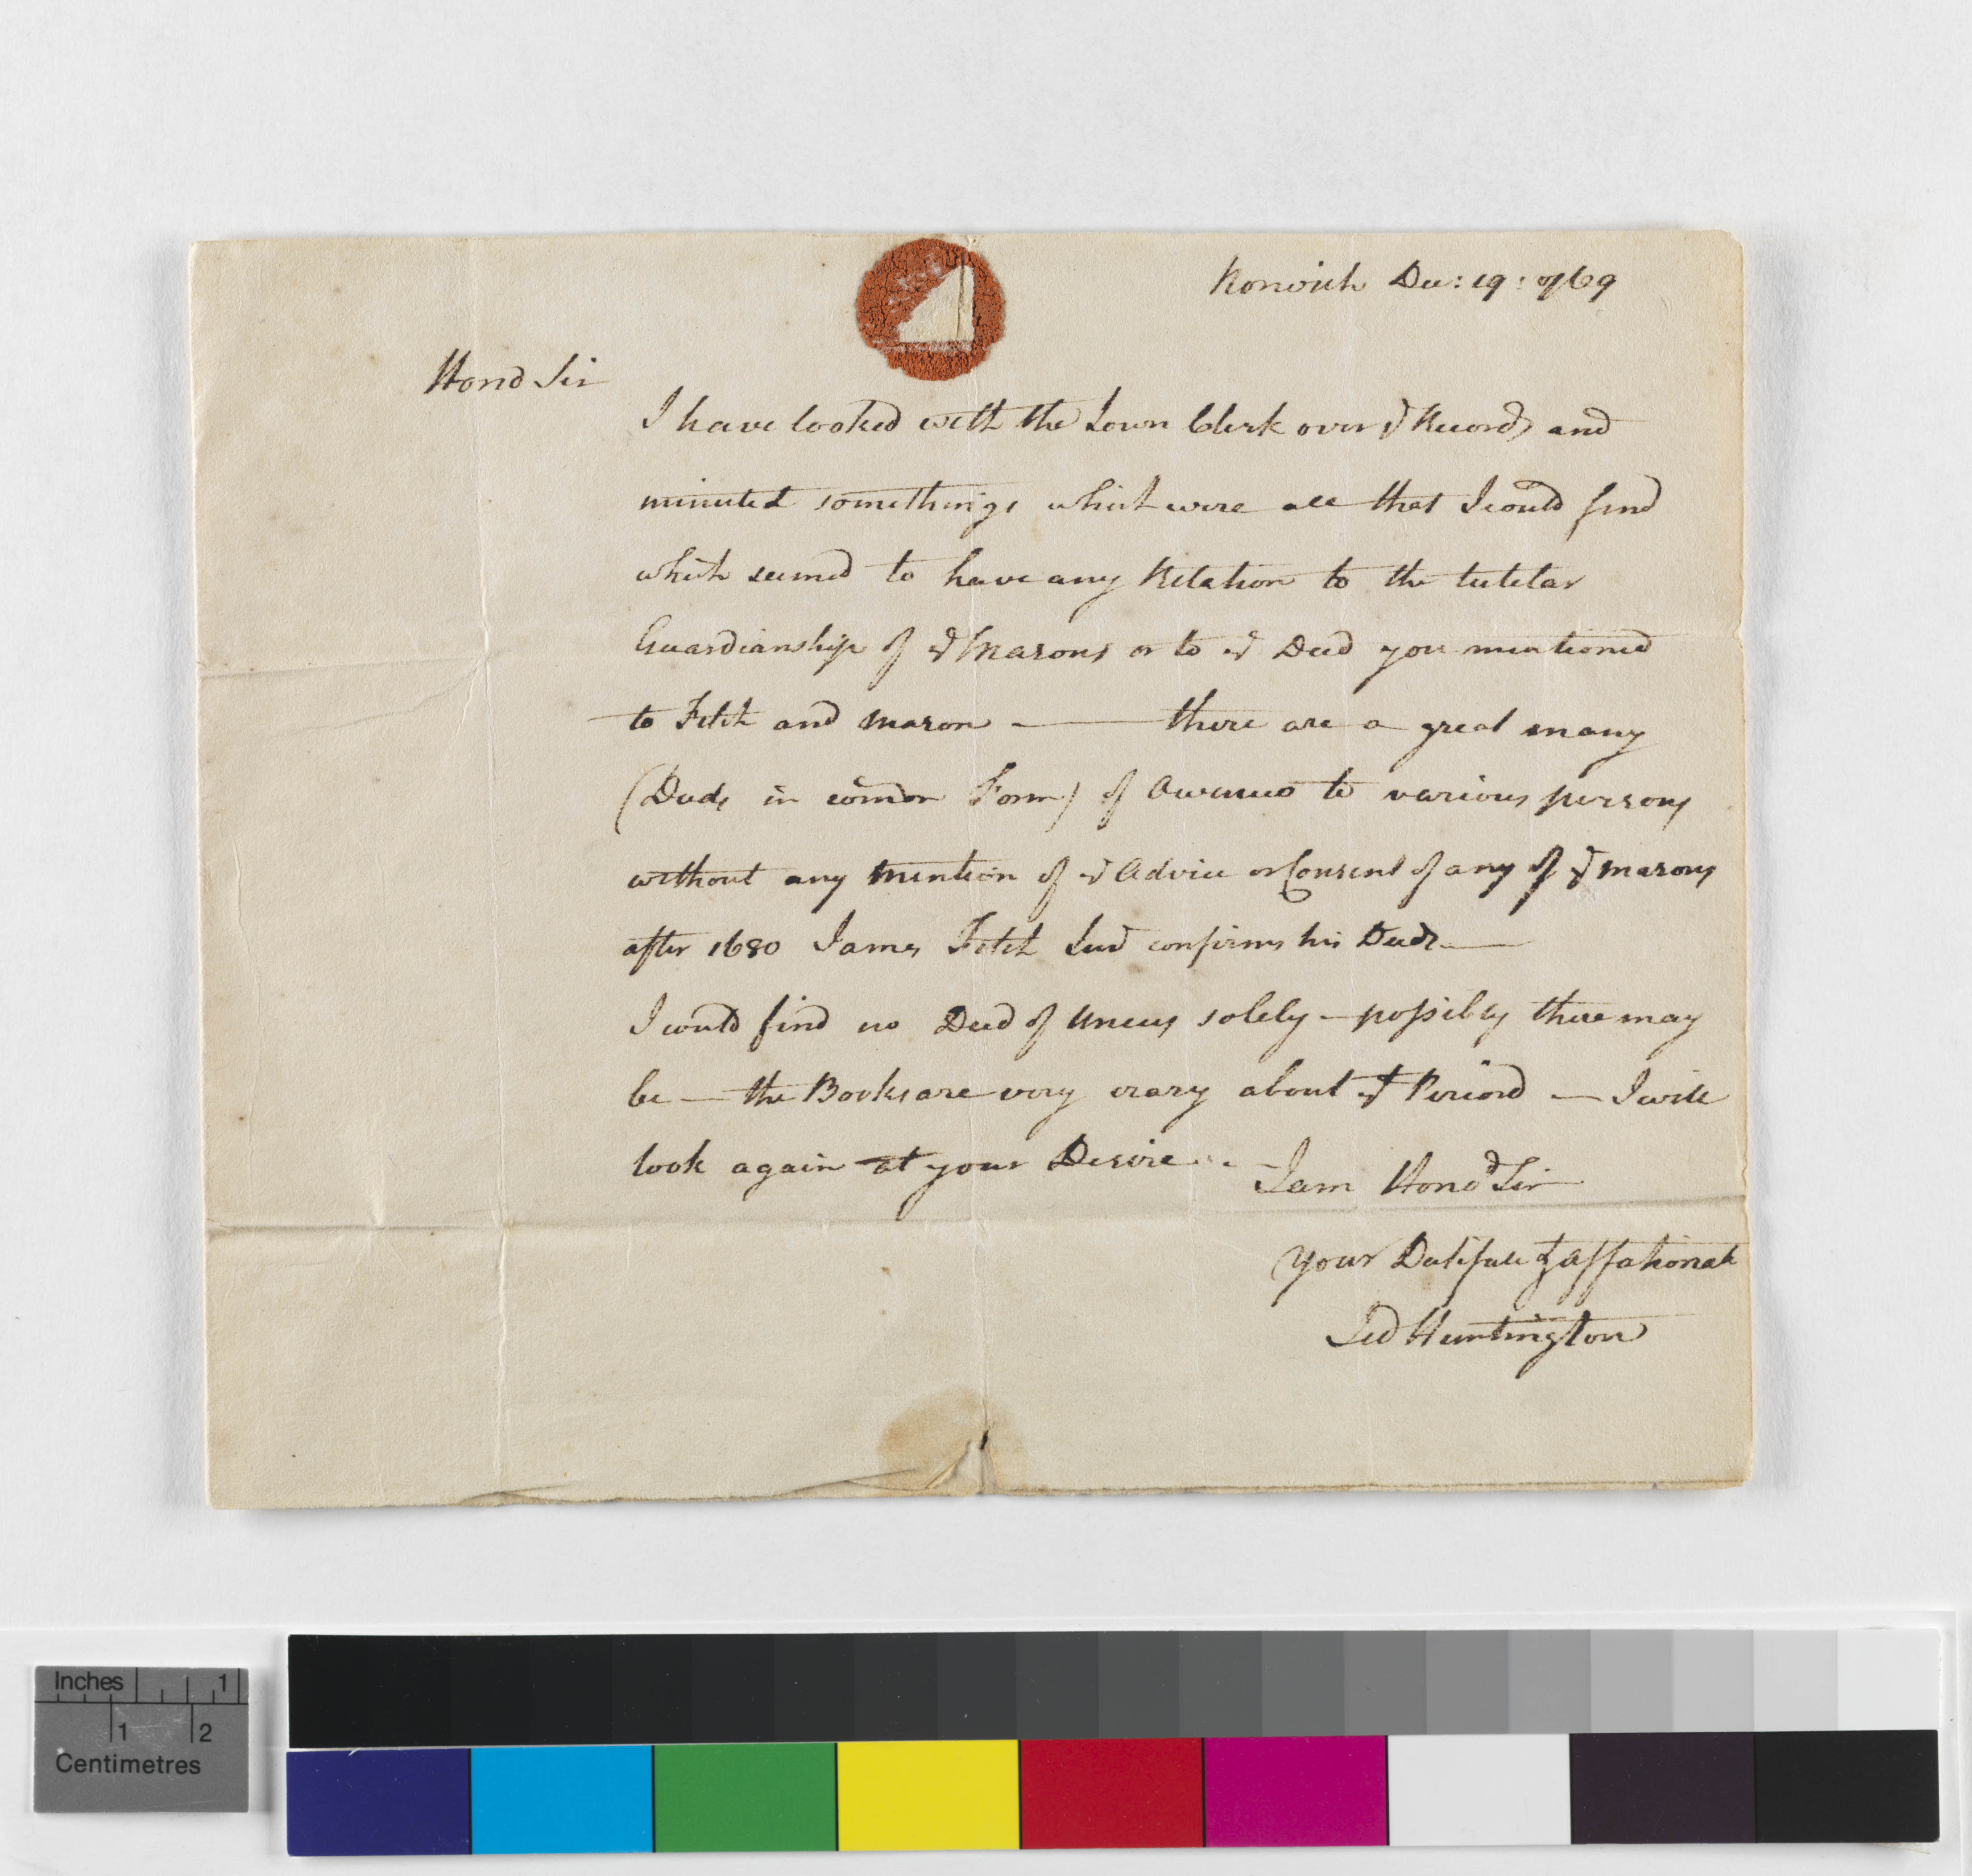 Norwich Dec: 19: 1769
Hond Sir
I have looked with the Town Clerk over ye Records and
minuted somethings which were all that I could find
which seemed to have any Relation to the tutelar
Guardianship of ye Masons or to ye Deed you mentioned
to Fitch and Mason — there are a great many
(Deeds in comon Form) of Owaneco to various persons
without any mention of ye Advice or Consent of any of ye Masons
after 1680 James Fitch confirms his Deeds —
I could find no Deed of Uncas solely — possibly there may
be — the Books are very crazy about yt Period — I will
look again at your Desire
I am Honod Sir
Your Dutifull & affationate
Jed Huntington
Inches 1
1 2
Centimetres